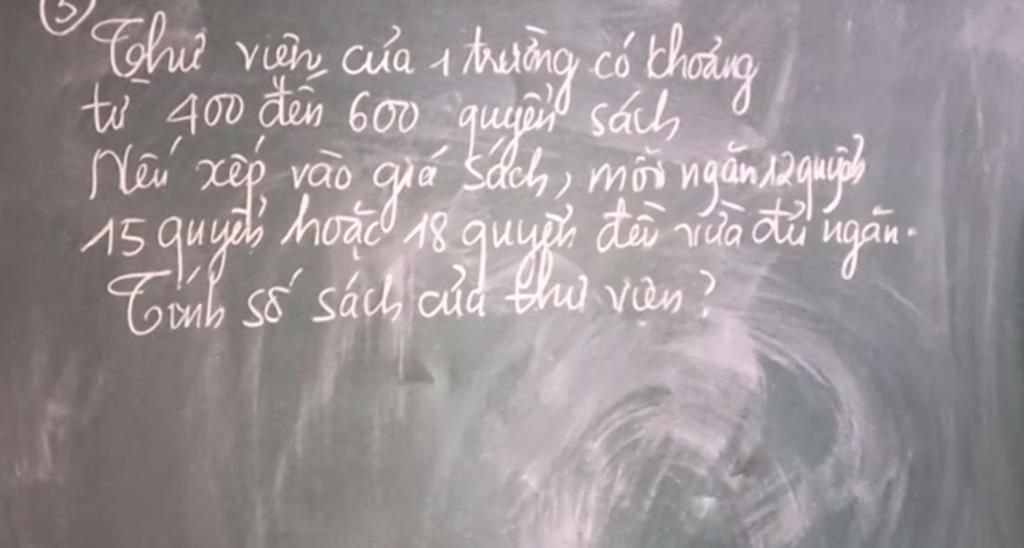 5
Thư viện của 1 trường có khoảng
từ 400 đến 600 quyển sách
Nếu xếp vào giá sách, mỗi ngăn 12 quyển
15 quyển hoặc 18 quyển đều vừa đủ ngăn.
Tính số sách của thư viện?